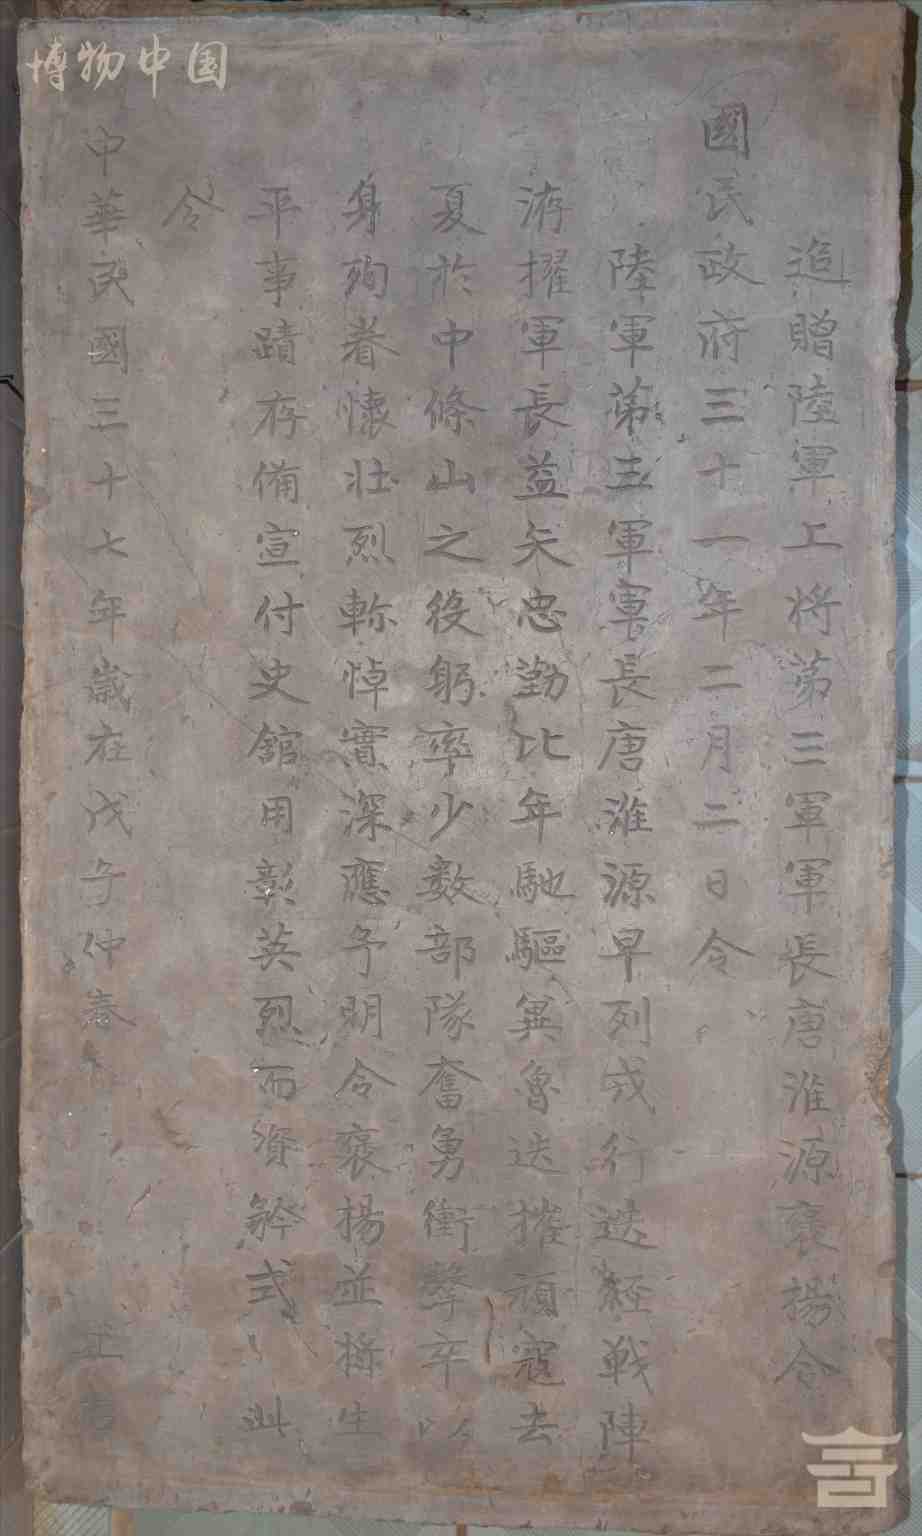 博物中国
追贈陸軍上將第三軍軍長唐淮源褒揚令
國民政府三十一年二月二日令
陸軍第三軍軍長唐淮源早列戎行迭經戰陣
洊擢軍長益矢忠勤比年馳驅冀魯迭摧頑寇去
夏於中條山之役躬率少數部隊奮勇衝擊卒以
身殉眷懷壯烈軫悼實深應予明令褒揚並將生
平事蹟存備宣付史館用彰英烈而資矜式此
令
中華民國三十七年歲在戊子仲春